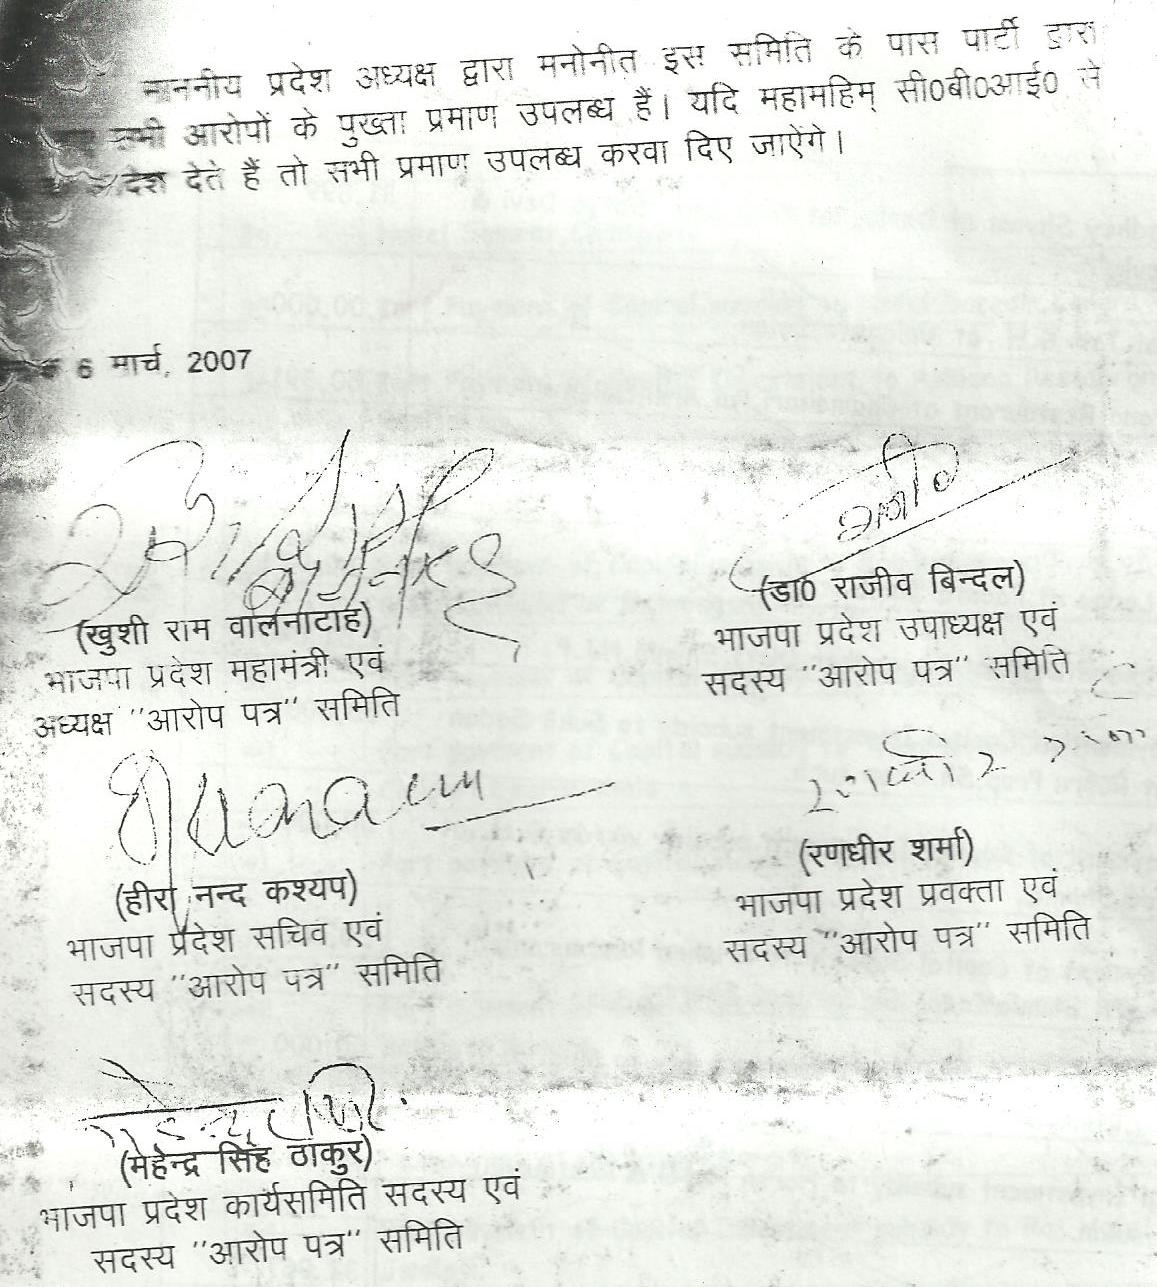 माननीय प्रदेश अध्यक्ष द्वारा मनोनीत इस समिति के पास पार्टी द्वारा
सभी आरोपों के पुख्ता प्रमाण उपलब्ध हैं। यदि महामहिम् सी0बी0आई0 से
देते हैं तो सभी प्रमाण उपलब्ध करवा दिए जाऐंगे।
6 मार्च, 2007
(खुशी राम बालनाटाह)
भाजपा प्रदेश महामंत्री एवं
अध्यक्ष "आरोप पत्र" समिति
(डा0 राजीव बिन्दल)
भाजपा प्रदेश उपाध्यक्ष एवं
सदस्य "आरोप पत्र" समिति
(हीरा नन्द कश्यप)
भाजपा प्रदेश सचिव एवं
सदस्य "आरोप पत्र" समिति
(रणधीर शर्मा)
भाजपा प्रदेश प्रवक्ता एवं
सदस्य "आरोप पत्र" समिति
(मेहेन्द्र सिंह ठाकुर)
भाजपा प्रदेश कार्यसमिति सदस्य एवं
सदस्य "आरोप पत्र" समिति